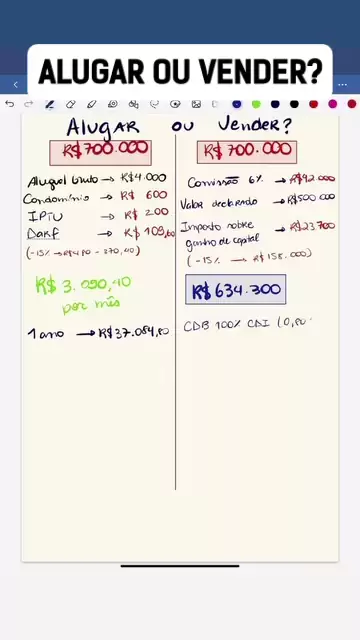 ALUGAR OU VENDER?
ALUGAR OU VENDER?
R$700.000 R$ 700.000
Aluguel bruto → R$4.000
Condomínio → R$ 600
IPTU → R$ 200
Darf → R$ 109,60
R$ 3.090,40
por mês
1 ano → R$37.084,80
Comissão 6% → R$42.000
Valor declarado → R$500.000
Imposto sobre → R$23.700
ganho de capital
(-15% → R$ 158.000)
R$ 634.300
CDB 100% CDI (0,80